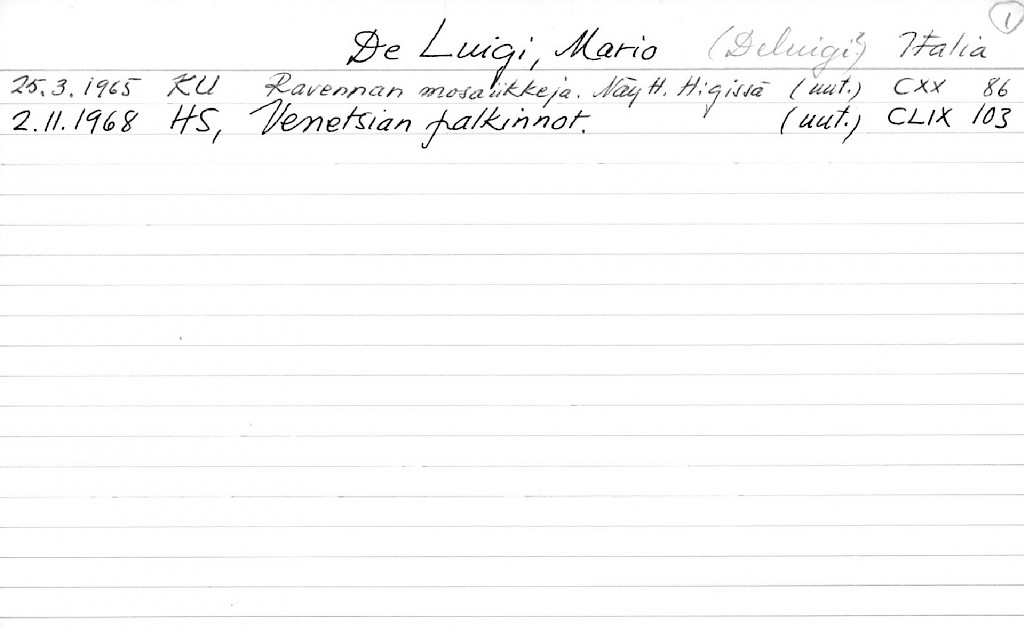 1
De Luigi, Mario (Deluigi?) Italia
25.3.1965 KU Ravennan mosaiikkeja. Näytt. H:gissä (uut.) CXX 86
2.11.1968 HS, Venetsian palkinnot. (uut.) CLIX 103